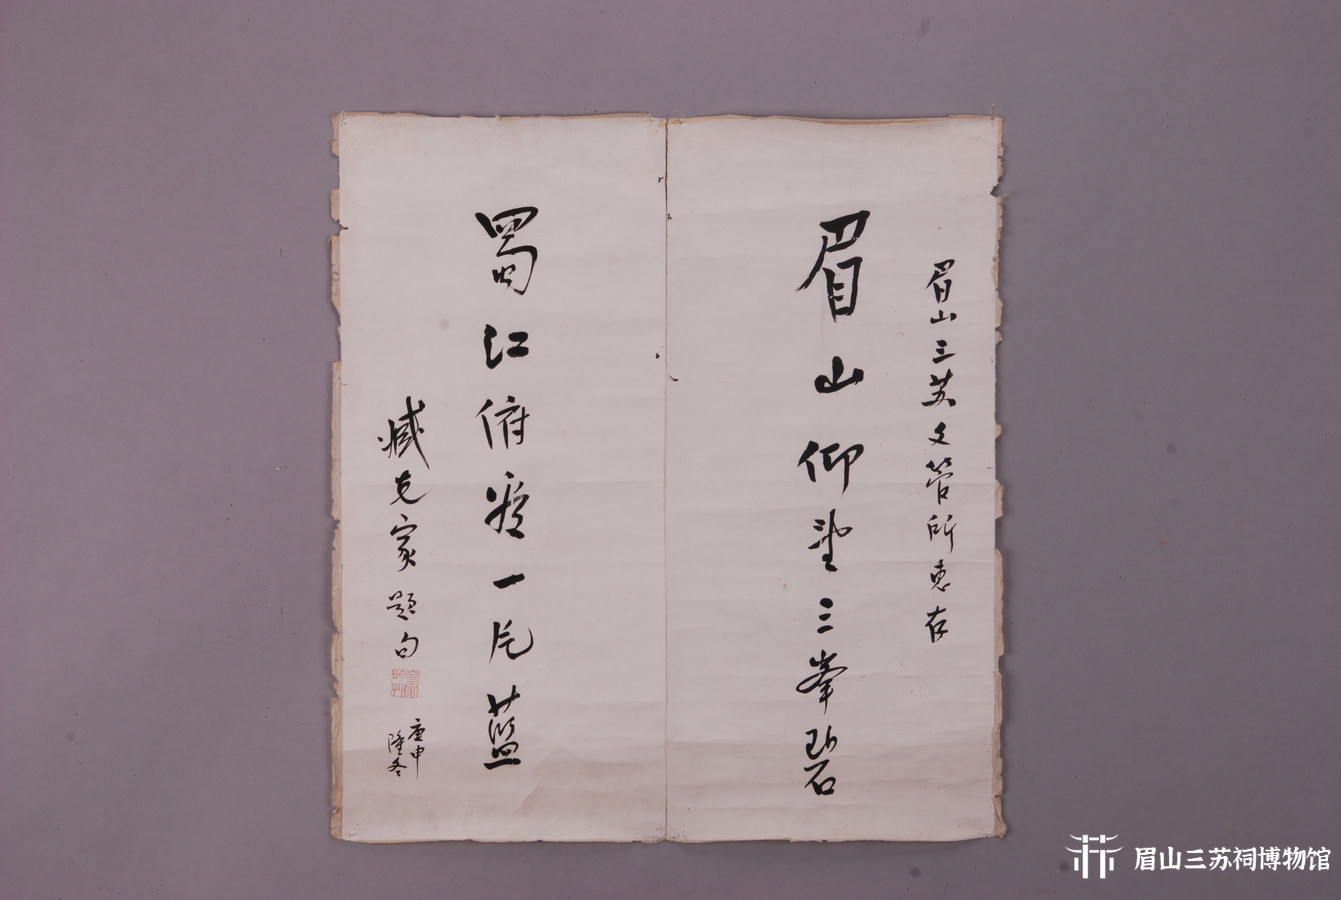 眉山三苏文管所惠存
眉山仰望三峯碧
蜀江俯瞰一片蓝
臧克家题句
庚申
隆冬
眉山三苏祠博物馆